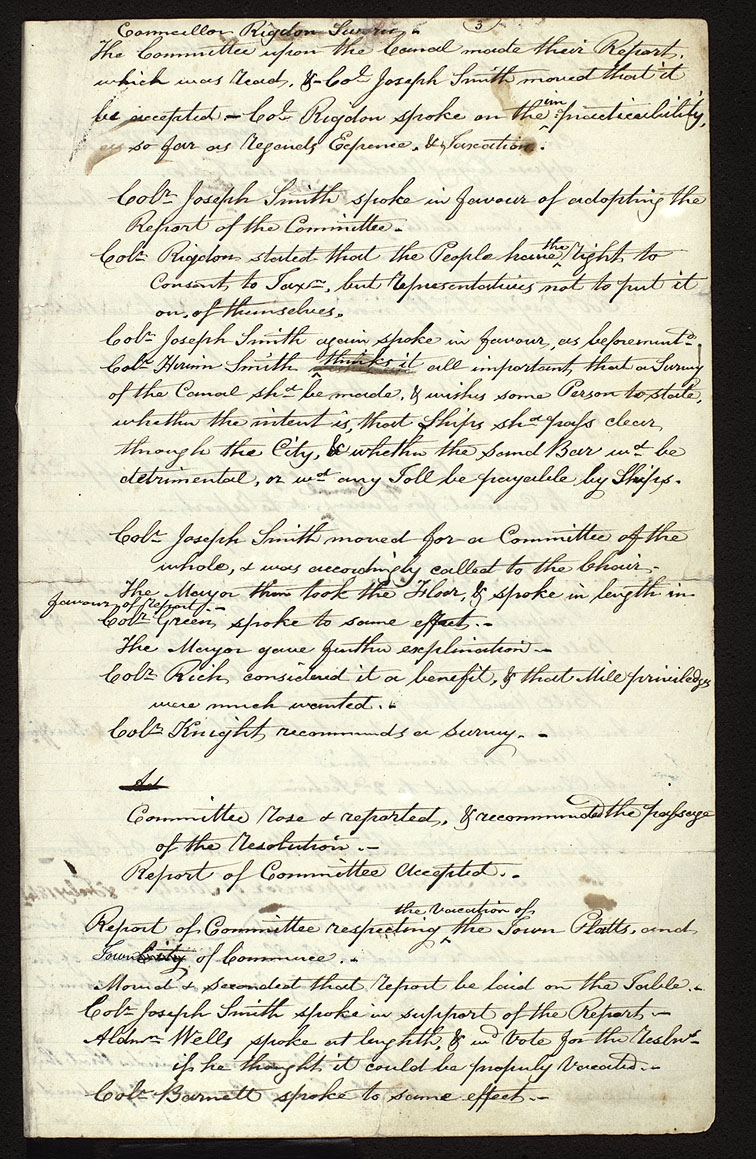 Councillor Rigdon
3
The Committee upon the Canal made their Report,
which was read. & Col. Joseph Smith moved that it
be accepted – Col. Rigdon spoke on the im practicability,
as so far as regards Expence, & Taxation.
Colr. Joseph Smith spoke in favour of adopting the
Report of the Committee. –
Colr. Rigdon stated that the People have the right to
Consent to Taxn., but representatives not to put it
on, of themselves.
Colr. Joseph Smith again spoke in favour, as beforementd.
Colr. Hirum Smith thinks it all important, that a Survey
of the Canal shd. be made, & wishes some Person to state,
whether the intent is, that Ships shd. pass clear
through the City, & whether the Sand Bar wd. be
detrimental, or wd. any Toll be payable by Ships. –
Colr. Joseph Smith moved for a Committee of the
whole, & was accordingly called to the Chair. –
The Mayor then took the Floor, & spoke in length in
favour of Report. –
Colr. Green, spoke to same effect. –
The Mayor gave further explination. –
Colr. Rich, considered it a benefit, & that Mill priviledges
were much wanted. –
Colr. Knight, recommends a Survey. –
Committee rose & reported, & recommended the passage
of the Resolution. –
Report of Committee Accepted. –
Report of Committee respecting the vacation of the Town Platts, and
Town City of Commerce. –
Moved & seconded that Report be laid on the Table. –
Colr. Joseph Smith spoke in support of the Report. –
Aldmn. Wells spoke at lenghth, & wd. Vote for the Reslnn. –
if he thought it could be properly Vacated. –
Colr. Barnett spoke to same effect. –